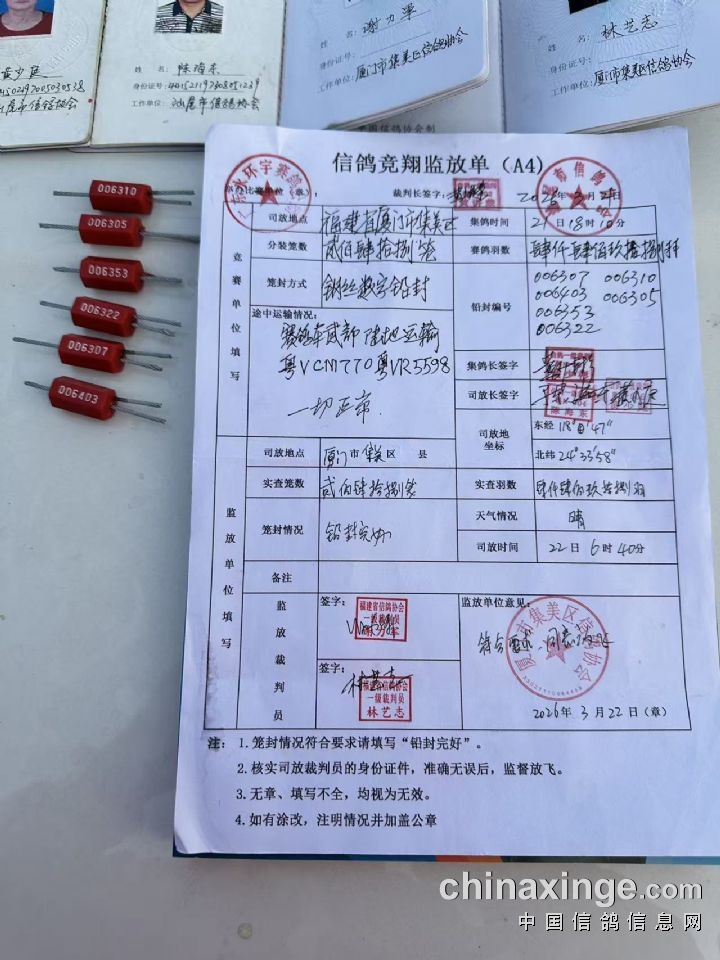 姓 名：陈海东
身份证号：
工作单位：汕尾市信鸽协会
谢力军
身份证号：
工作单位：厦门市集美区信鸽协会
林艺志
身份证号：
工作单位：厦门市集美区信鸽协会
中国信鸽协会制
006310
006305
006353
006322
006307
006403
信鸽竞翔监放单（A4）
裁判长签字： 2026年3月21日
竞赛单位填写
司放地点 福建省厦门市集美区 集鸽时间 21日18时10分
分装笼数 贰佰肆拾捌笼 赛鸽羽数 肆仟肆佰玖拾捌羽
笼封方式 钢丝数字铅封 铅封编号 006307 006310
006403 006305
006353
006322
途中运输情况：
赛鸽车贰部 陆地运输
粤VCM770 粤VR5598
一切正常
集鸽长签字
司放长签字
陈海东
司放地坐标 东经 118° 47"
北纬 24°33'58"
监放单位填写
司放地点 厦门市集美区 县
实查笼数 贰佰肆拾捌笼 实查羽数 肆仟肆佰玖拾捌羽
笼封情况 铅封完好 天气情况 晴
司放时间 22日6时40分
备注
监放裁判员
签字：
福建省信鸽协会
一级裁判员
签字：
福建省信鸽协会
一级裁判员
林艺志
监放单位意见：
符合要求 同意放飞
厦门市集美区信鸽协会
2026年3月22日（章）
注： 1.笼封情况符合要求请填写“铅封完好”。
2.核实司放裁判员的身份证件，准确无误后，监督放飞。
3.无章、填写不全，均视为无效。
4.如有涂改，注明情况并加盖公章
chinaxinge.com
中国信鸽信息网